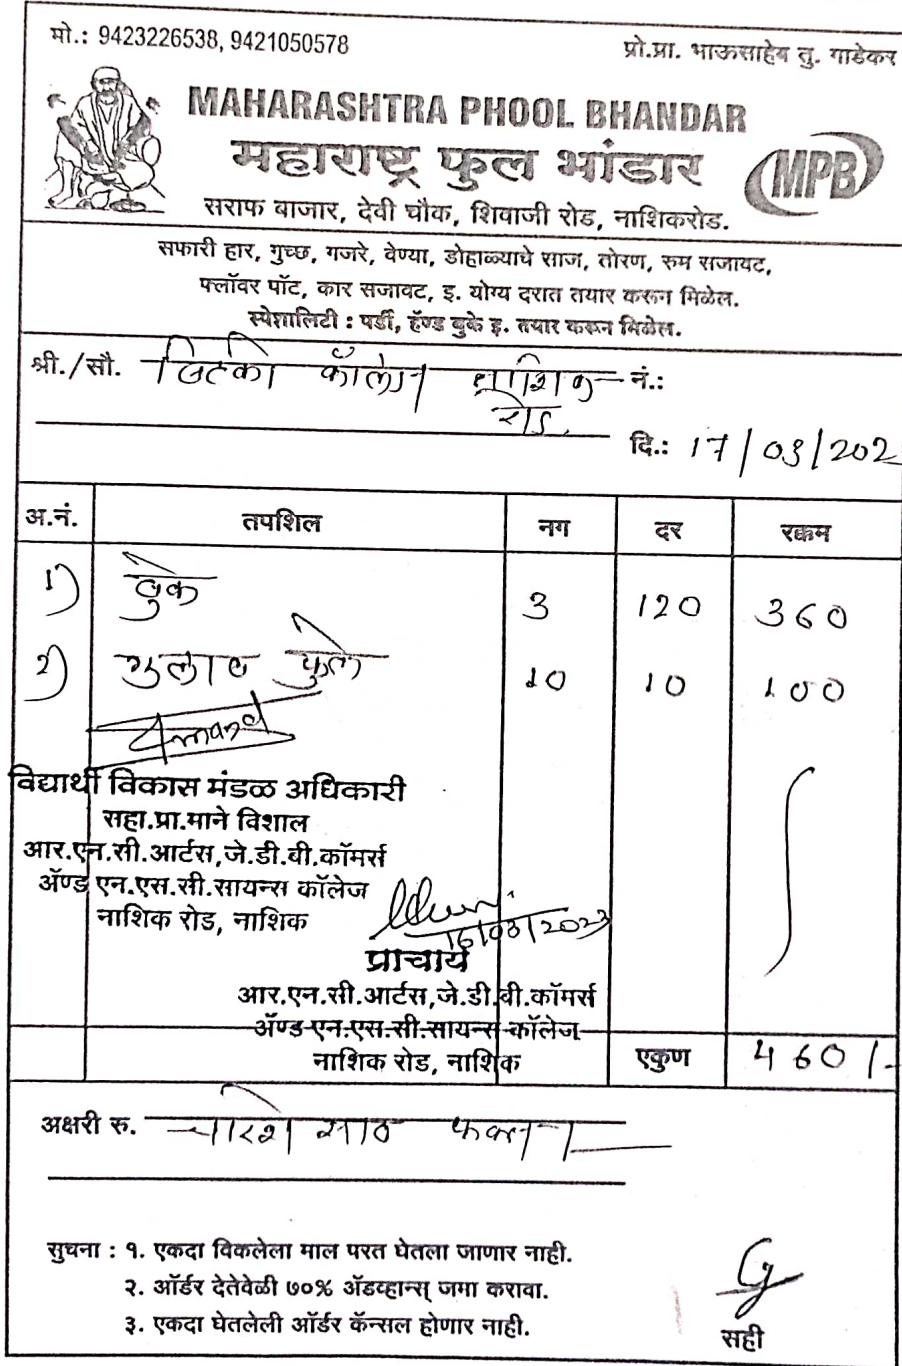 मो.: 9423226538, 9421050578 प्रो.प्रा. भाऊसाहेब तु. गाडेकर
MAHARASHTRA PHOOL BHANDAR
महाराष्ट्र फुल भांडार
MPB
सराफ बाजार, देवी चौक, शिवाजी रोड, नाशिकरोड.
सफारी हार, गुच्छ, गजरे, वेण्या, डोहाळ्याचे साज, तोरण, रुम सजावट,
फ्लॉवर पॉट, कार सजावट, इ. योग्य दरात तयार करून मिळेल.
स्पेशालिटी : पर्डी, हॅण्ड बुके इ. तयार करून मिळेल.
श्री./सौ. बिटको कॉलेज नाशिक नं.:
रोड
दि.: 17/03/202
अ.नं. तपशिल नग दर रक्कम
1) बुके 3 120 360
2) गुलाब फुले 10 10 100
विद्यार्थी विकास मंडळ अधिकारी
सहा.प्रा.माने विशाल
आर.एन.सी.आर्टस,जे.डी.बी.कॉमर्स
ॲण्ड एन.एस.सी.सायन्स कॉलेज
नाशिक रोड, नाशिक
16/03/2023
प्राचार्य
आर.एन.सी.आर्टस,जे.डी.बी.कॉमर्स
ॲण्ड एन.एस.सी.सायन्स कॉलेज
नाशिक रोड, नाशिक
एकुण 460/-
अक्षरी रु. चारशे साठ फक्त
सुचना : १. एकदा विकलेला माल परत घेतला जाणार नाही.
२. ऑर्डर देतेवेळी ७०% ॲडव्हान्स् जमा करावा.
३. एकदा घेतलेली ऑर्डर कॅन्सल होणार नाही.
सही